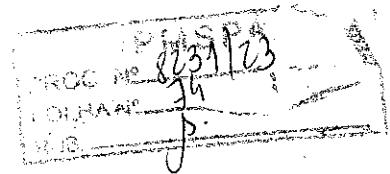 PMSPA
PROC Nº 8231/23
FOLHA Nº 74
RUB.